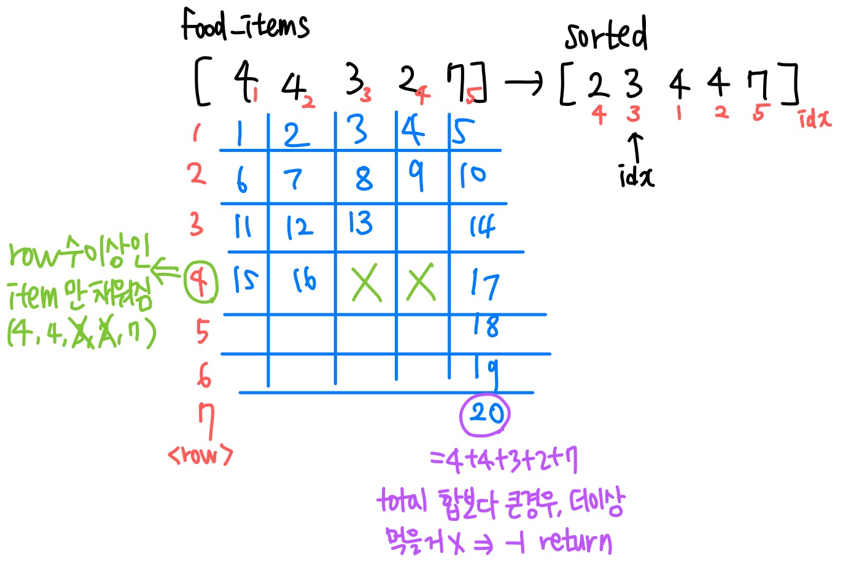 food_items
sorted
[ 4 4 3 2 7 ] → [ 2 3 4 4 7 ]
1 2 3 4 5
4 3 1 2 5 idx
↑
idx
1 1 2 3 4 5
2 6 7 8 9 10
3 11 12 13 14
4 15 16 X X 17
5 18
6 19
7 20
<row>
row수이상인
item 만 채워짐
(4, 4, 3, 2, 7)
=4+4+3+2+7
total 합보다 큰경우, 더이상
먹을거 X ⇒ -1 return